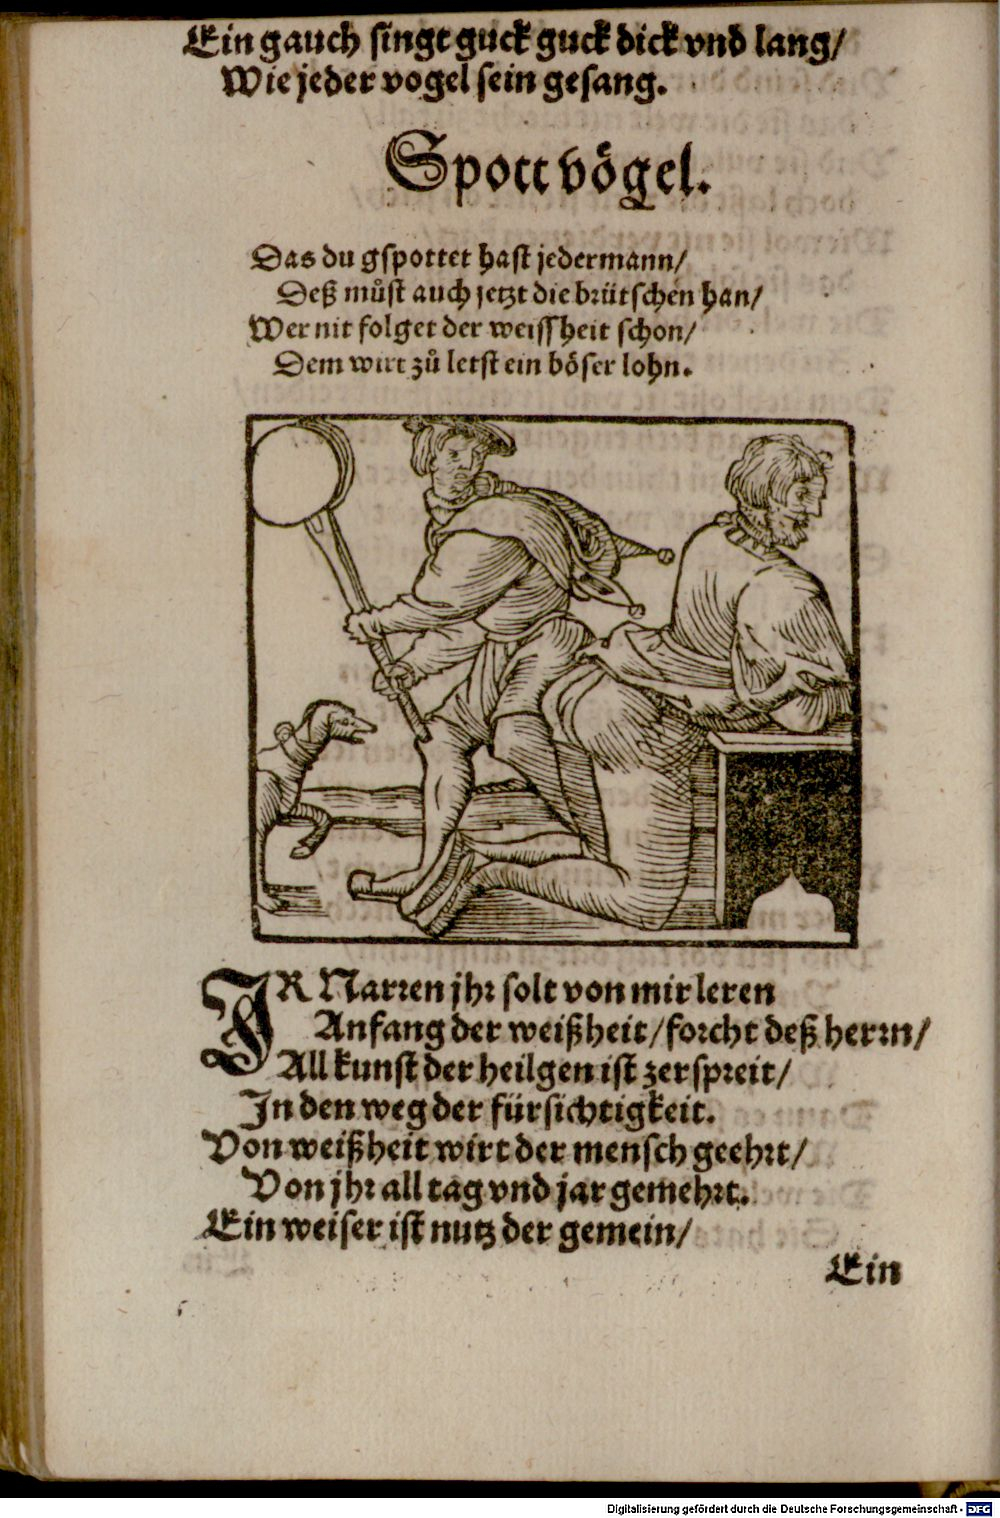 Ein gauch singt guck guck dick vnd lang/
Wie jeder vogel sein gesang.
Spottvögel.
Das du gspottet hast jedermann/
Deß můst auch jetzt die brütschen han/
Wer nit folget der weissheit schon/
Dem wirt zů letst ein böser lohn.
IR Narren jhr solt von mir leren
Anfang der weißheit/ forcht deß herrn/
All kunst der heilgen ist zerspreit/
In den weg der fürsichtigkeit.
Von weißheit wirt der mensch geehrt/
Von jhr all tag vnd jar gemehrt.
Ein weiser ist nutz der gemein/
Ein
Digitalisierung gefördert durch die Deutsche Forschungsgemeinschaft - DFG